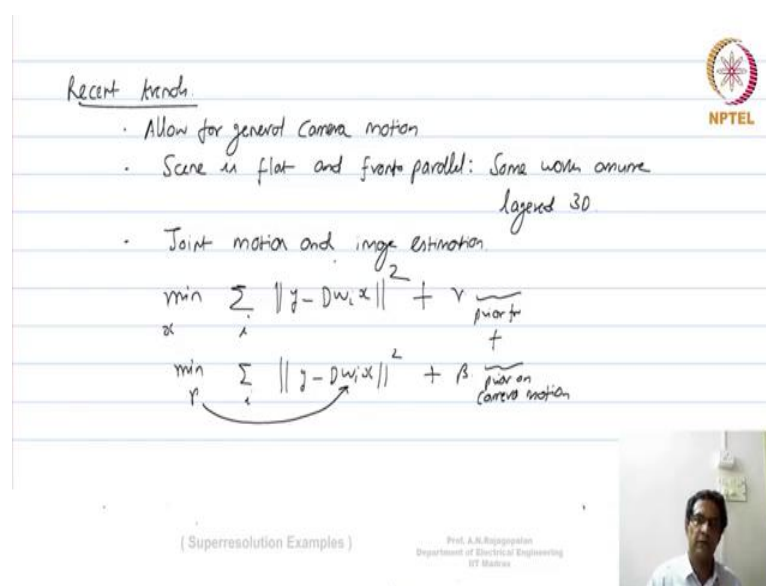 Recent trends.
· Allow for general camera motion
· Scene is flat and fronto parallel: Some works assume
layered 3D.
· Joint motion and image estimation.
min x Σ i || y - D w_i x ||² + γ prior for
+
min γ Σ i || y - D w_i x ||² + β. prior on camera motion
NPTEL
( Superresolution Examples )
Prof. A.N.Rajagopalan
Department of Electrical Engineering
IIT Madras